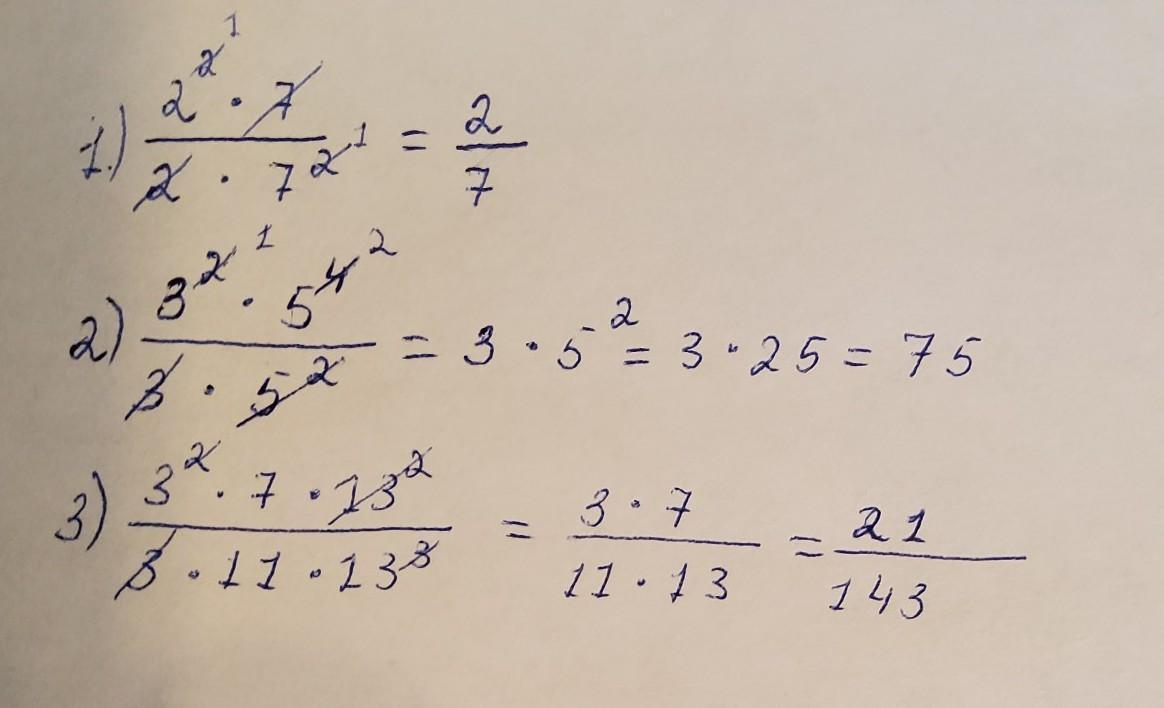 1.) (2^2^1 · 7) / (2 · 7^2^1) = 2/7
2) (3^2^1 · 5^4^2) / (3 · 5^2) = 3 · 5^2 = 3 · 25 = 75
3) (3^2 · 7 · 13^2) / (3 · 11 · 13^3) = (3 · 7) / (11 · 13) = 21/143